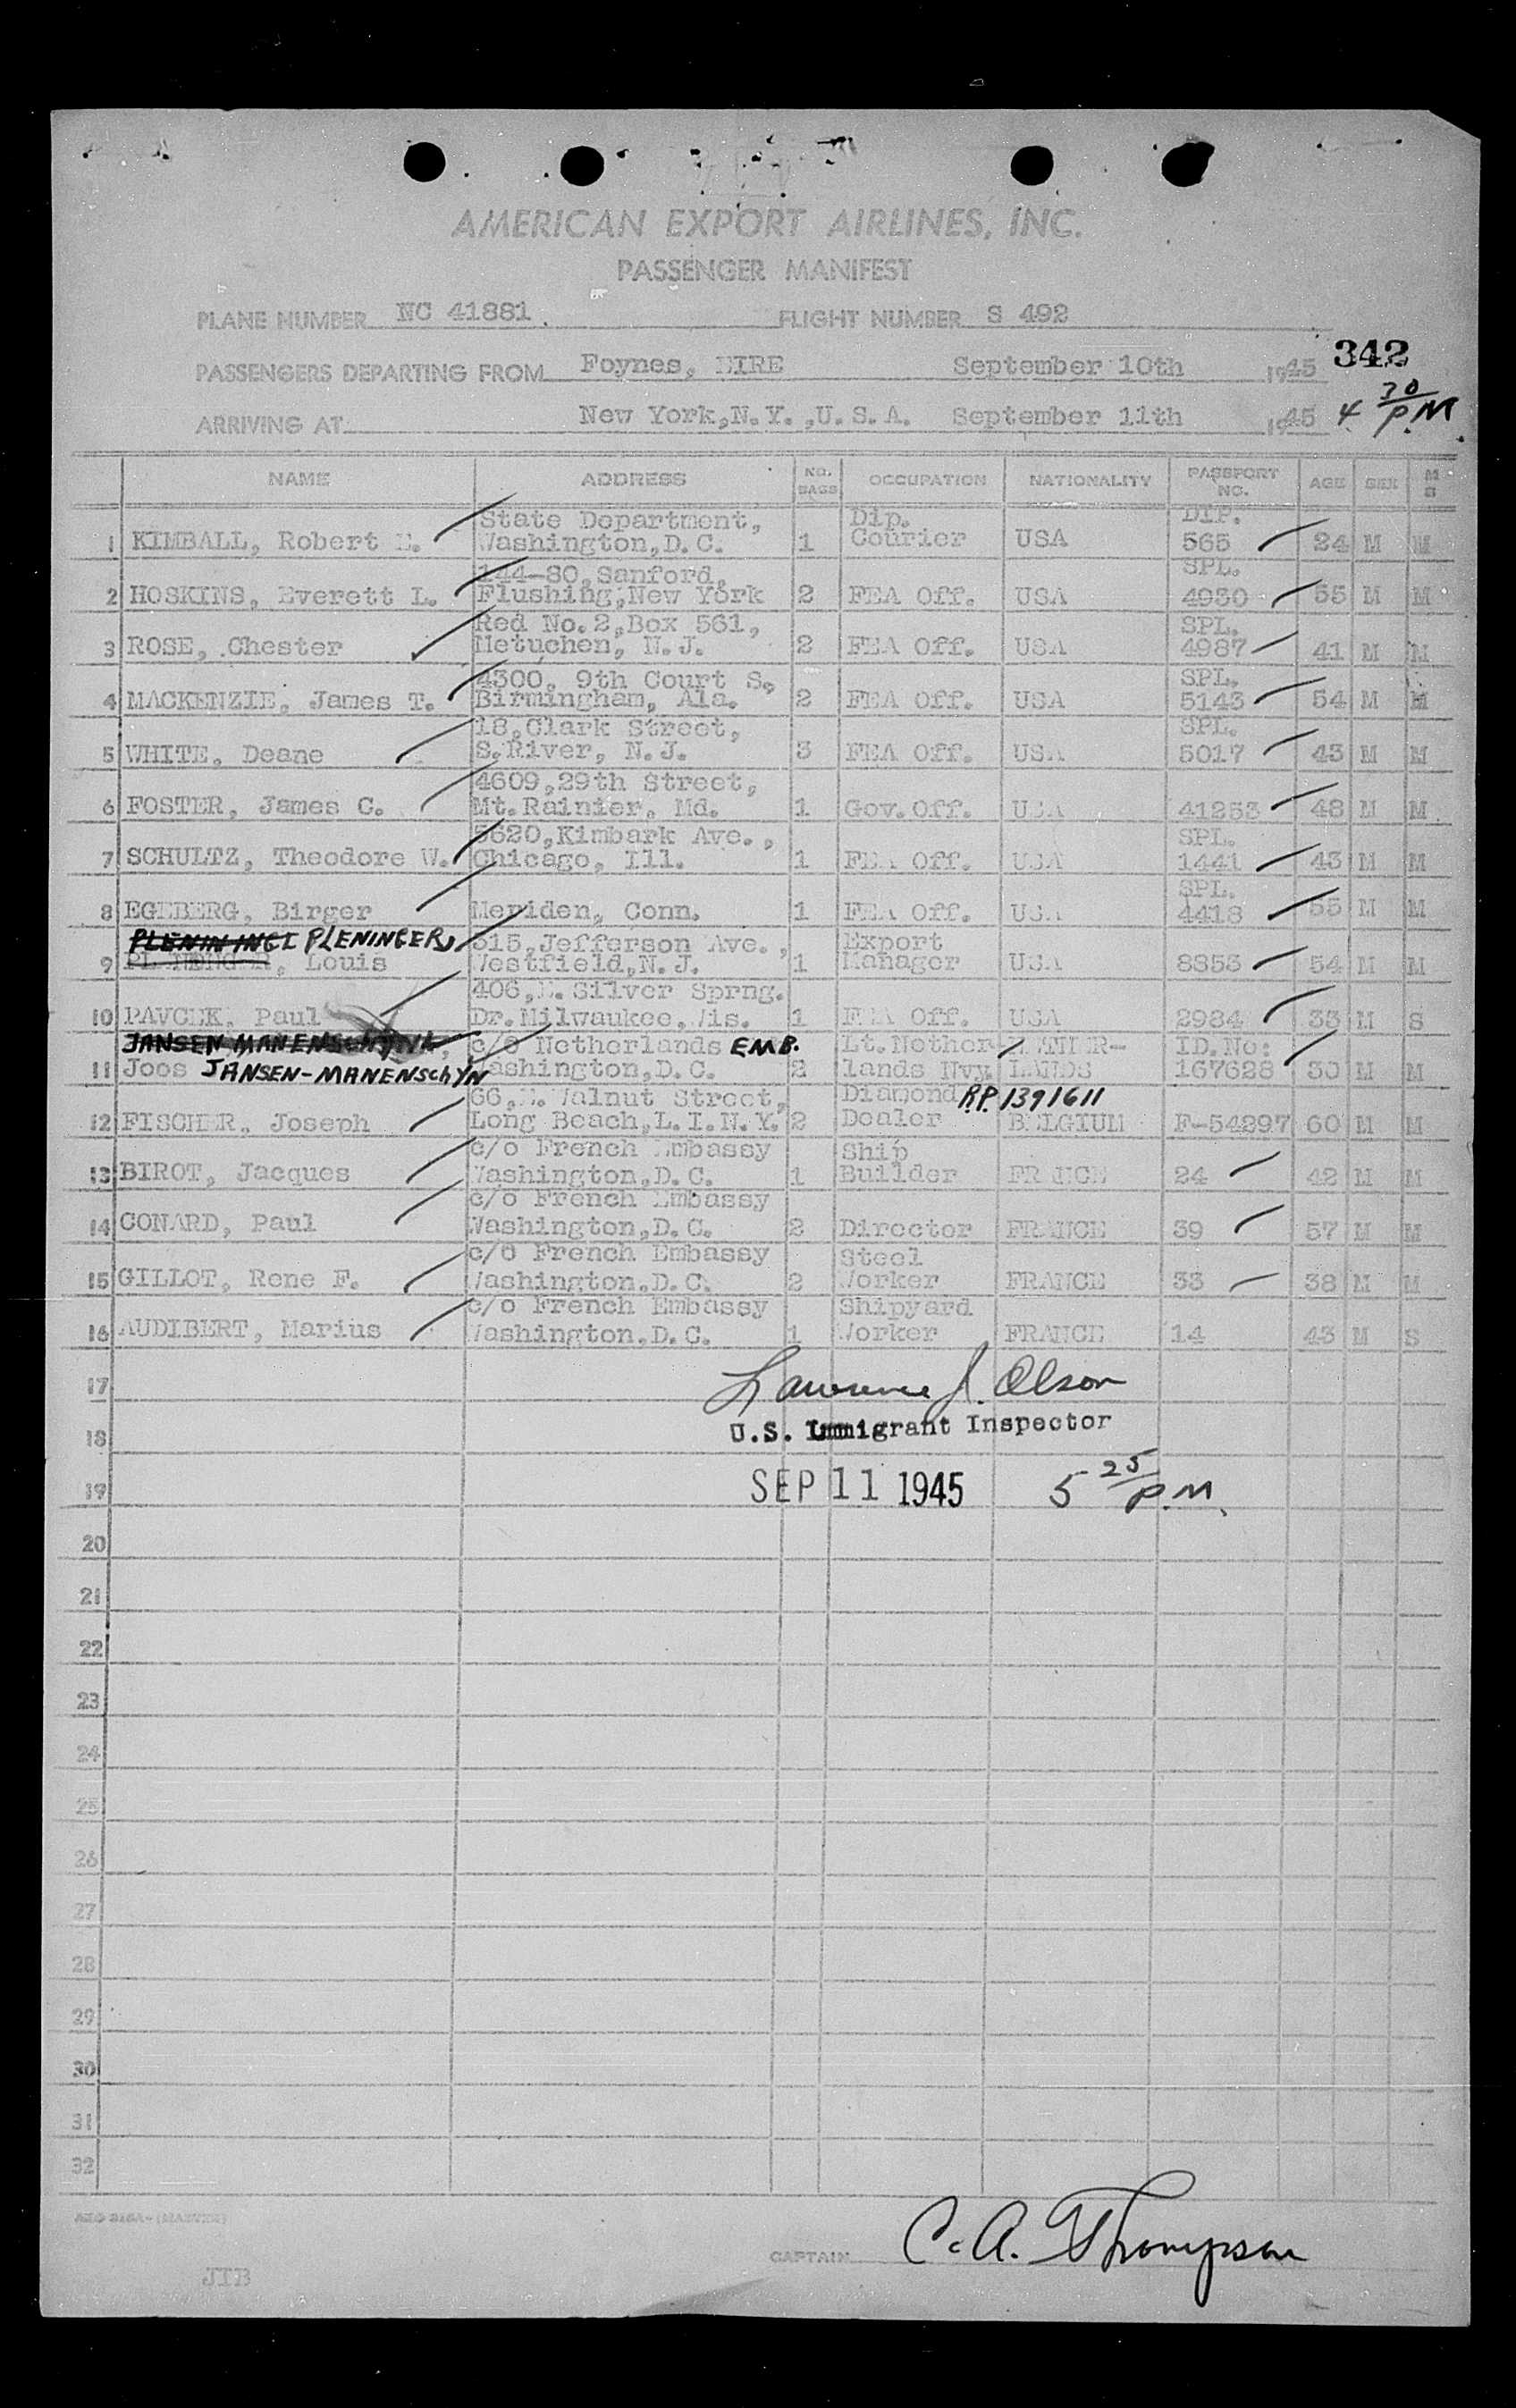 AMERICAN EXPORT AIRLINES, INC.
PASSENGER MANIFEST
PLANE NUMBER NC 41881. FLIGHT NUMBER S 492
342
PASSENGERS DEPARTING FROM Foynes, EIRE September 10th 1945
ARRIVING AT New York,N.Y.,U.S.A. September 11th 1945 4 30/P.M.
NAME ADDRESS NO. BAGS OCCUPATION NATIONALITY PASSPORT NO. AGE SEX M S
State Department, Dip. DIP.
1 KIMBALL, Robert E. Washington,D.C. 1 Courier USA 565 24 M M
144-80,Sanford, SPL.
2 HOSKINS, Everett L. Flushing,New York 2 FEA Off. USA 4930 55 M M
Red No.2,Box 561, SPL.
3 ROSE, Chester Metuchen, N.J. 2 FEA Off. USA 4987 41 M M
4300, 9th Court S, SPL.
4 MACKENZIE, James T. Birmingham, Ala. 2 FEA Off. USA 5143 54 M M
18,Clark Street, SPL.
5 WHITE, Deane S.River, N.J. 3 FEA Off. USA 5017 43 M M
4609,29th Street,
6 FOSTER, James C. Mt.Rainier, Md. 1 Gov.Off. USA 41253 48 M M
5620,Kimbark Ave., SPL.
7 SCHULTZ, Theodore W. Chicago, Ill. 1 FEA Off. USA 1441 43 M M
SPL.
8 EGEBERG, Birger Meriden, Conn. 1 FEA Off. USA 4418 55 M M
PLENINGER, 515,Jefferson Ave., Export
9 Louis Westfield,N.J. 1 Manager USA 8353 54 M M
406,E. Silver Sprng.
10 PAVCEK, Paul Dr.Milwaukee,Wis. 1 FEA Off. USA 2984 33 M S
JANSEN MANENSCHYN, c/o Netherlands EMB. Lt.Nether- NETHER- ID.No:
11 Joos JANSEN-MANENSCHYN Washington,D.C. 2 lands Nvy LANDS 167628 30 M M
66,W.Walnut Street, Diamond P.P. 1391611
12 FISCHER, Joseph Long Beach,L.I.N.Y. 2 Dealer BELGIUM F-54297 60 M M
c/o French Embassy Ship
13 BIROT, Jacques Washington,D.C. 1 Builder FRANCE 24 42 M M
c/o French Embassy
14 CONARD, Paul Washington,D.C. 2 Director FRANCE 39 57 M M
c/o French Embassy Steel
15 GILLOT, Rene F. Washington,D.C. 2 Worker FRANCE 33 38 M M
c/o French Embassy Shipyard
16 AUDIBERT, Marius Washington,D.C. 1 Worker FRANCE 14 43 M S
17 Lawrence J. Olson
18 U.S. Immigrant Inspector
19 SEP 11 1945 5 25/P.M.
20
21
22
23
24
25
26
27
28
29
30
31
32
CAPTAIN C. A. Thompson
JTB